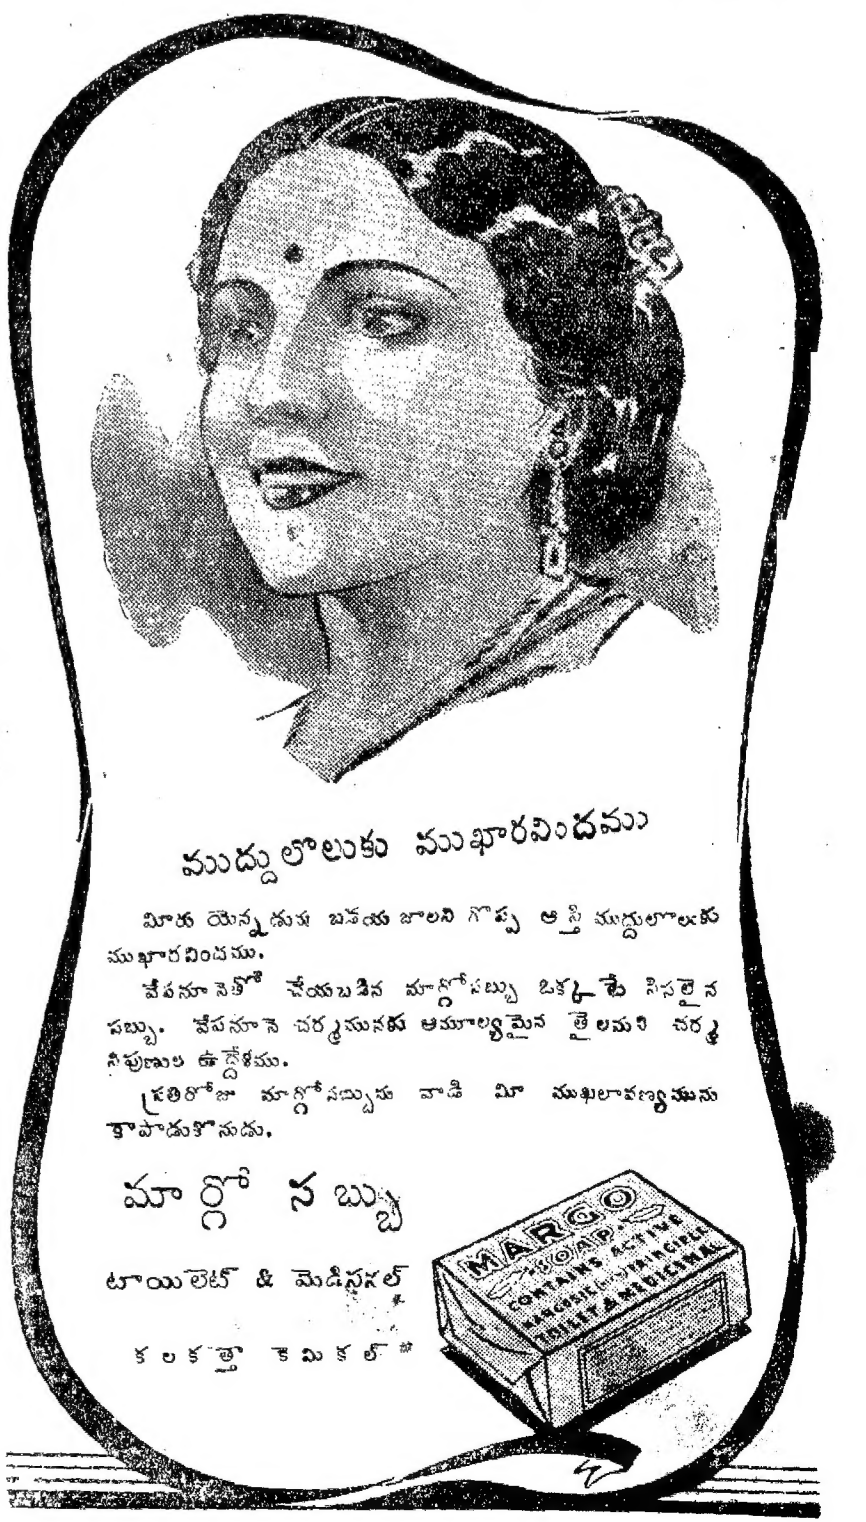 ముద్దులొలుకు ముఖారవిందము
మీరు యెన్నడును బడయ జాలని గొప్ప ఆస్తి ముద్దులొలుకు
ముఖారవిందము.
వేపనూనెతో చేయబడిన మార్గోసబ్బు ఒక్కటే సిసలైన
సబ్బు. వేపనూనె చర్మమునకు ఆమూల్యమైన తైలమని చర్మ
నిపుణుల ఉద్దేశము.
ప్రతిరోజు మార్గోసబ్బును వాడి మీ ముఖలావణ్యమును
కాపాడుకొనుడు.
మార్గో సబ్బు
టాయిలెట్ & మెడిసనల్
కలకత్తా కెమికల్
MARGO
SOAP
CONTAINS ACTIVE
MARGOSIC PRINCIPLE
TOILET & MEDICINAL